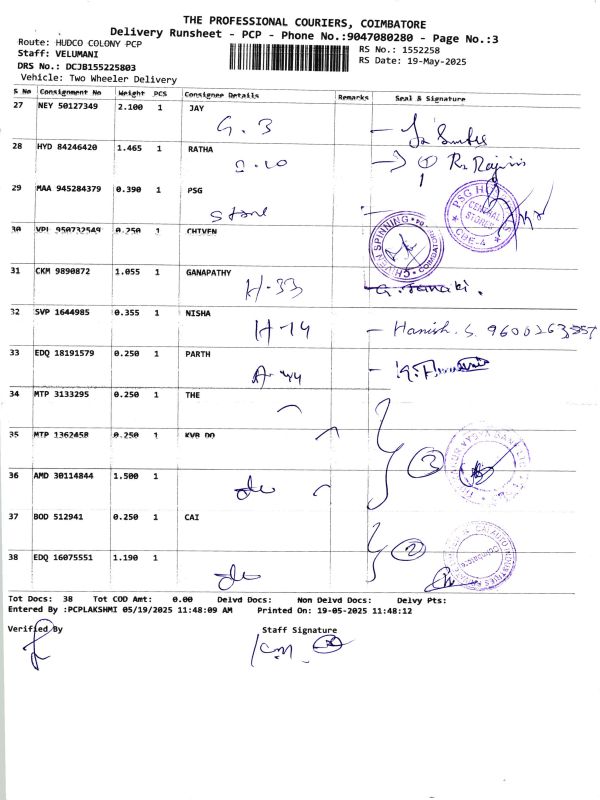 THE PROFESSIONAL COURIERS, COIMBATORE
Delivery Runsheet - PCP - Phone No.:9047080280 - Page No.:3
Route: HUDCO COLONY PCP RS No.: 1552258
Staff: VELUMANI RS Date: 19-May-2025
DRS No.: DCJB155225803
Vehicle: Two Wheeler Delivery
S No Consignment No Weight PCS Consignee Details Remarks Seal & Signature
27 NEY 50127349 2.100 1 JAY
G.3
28 HYD 84246420 1.465 1 RATHA
29 MAA 945284379 0.390 1 PSG
Store
PSG
GENERAL STORES
30 VPL 950732549 0.250 1 CHIVEN
CHIVEN SPINNING
31 CKM 9890872 1.055 1 GANAPATHY
H-33 G. Janaki.
32 SVP 1644985 0.355 1 NISHA
H-14 - Hanish.S. 9600263557
33 EDQ 18191579 0.250 1 PARTH
A-44
34 MTP 3133295 0.250 1 THE
35 MTP 1362458 0.250 1 KVB DO
3
36 AMD 30114844 1.500 1
37 BOD 512941 0.250 1 CAI
2
38 EDQ 16075551 1.190 1
Tot Docs: 38 Tot COD Amt: 0.00 Delvd Docs: Non Delvd Docs: Delvy Pts:
Entered By :PCPLAKSHMI 05/19/2025 11:48:09 AM Printed On: 19-05-2025 11:48:12
Verified By Staff Signature